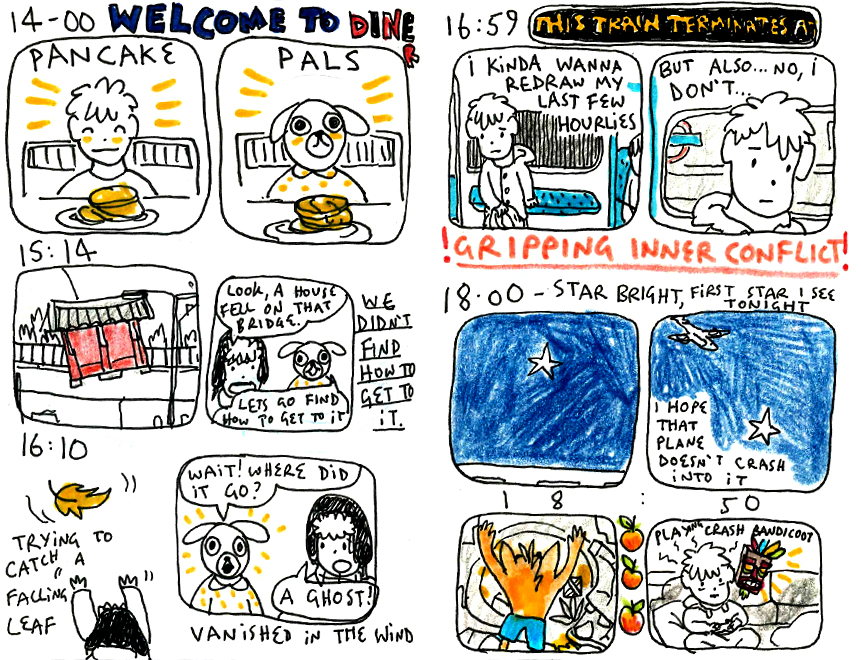 14-00 WELCOME TO DINER
PANCAKE
PALS
15:14
LOOK, A HOUSE
FELL ON THAT
BRIDGE.
LETS GO FIND
HOW TO GET TO IT
WE
DIDN'T
FIND
HOW TO
GET TO
IT.
16:10
TRYING TO
CATCH A
FALLING
LEAF
WAIT! WHERE DID
IT GO?
A GHOST!
VANISHED IN THE WIND
16:59 THIS TRAIN TERMINATES AT
I KINDA WANNA
REDRAW MY
LAST FEW
HOURLIES
BUT ALSO... NO, I
DON'T...
!GRIPPING INNER CONFLICT!
18:00 - STAR BRIGHT, FIRST STAR I SEE
TONIGHT
I HOPE
THAT
PLANE
DOESN'T CRASH
INTO IT
18:50
PLAYING CRASH BANDICOOT